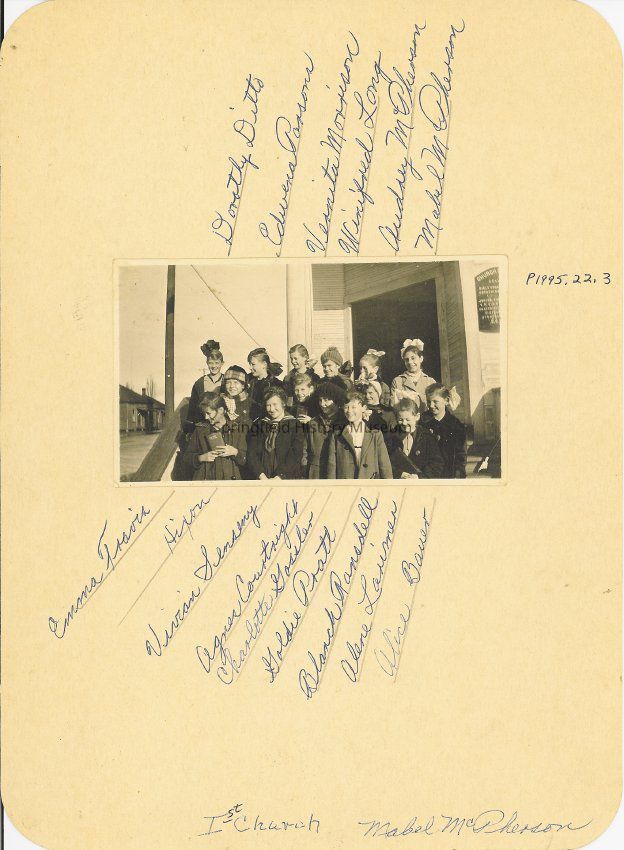 Dorothy Ditto
Edwena Parsons
Vernita Morrison
Winifred Long
Audrey McPherson
Mabel McPherson
P1995.22.3
CHURCH
Springfield History Museum
Emma Travis
Hixon
Vivian Senseny
Agnes Courtright
Charlotte Gossler
Goldie Pratt
Blanch Ransdell
Alene Larimer
Alice Bauer
Ist Church
Mabel McPherson